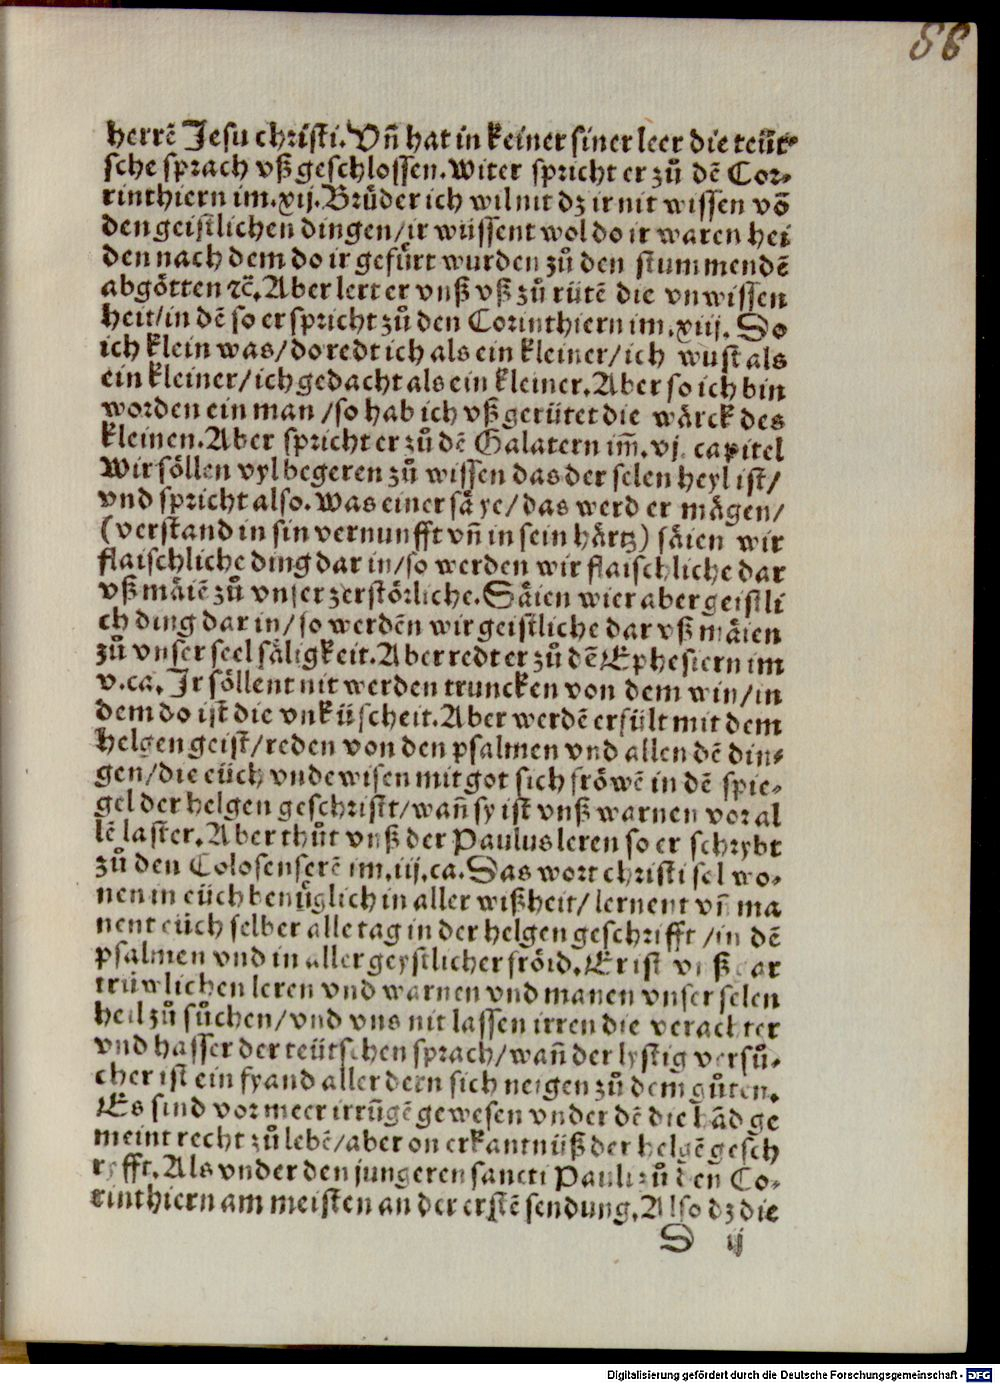 88
herrē Jesu christi. Vn̄ hat in keiner siner leer die teüt⸗
sche sprach vß geschlossen. Witer spricht er zů dē Cor⸗
rinthiern im .xij. Brůder ich wil nit dz ir nit wissen vō
den geistlichen dingen/ ir wüssent wol do ir waren hei
den nach dem do ir gefürt wurden zů den stummendē
abgötten ꝛc̄. Aber lert er vnß vß zů rütē die vnwissen
heit/ in dē so er spricht zů den Corinthiern im .xiij. So
ich klein was/ do redt ich als ein kleiner/ ich wust als
ein kleiner/ ich gedacht als ein kleiner. Aber so ich bin
worden ein man /so hab ich vß gerütet die wärck des
kleinen. Aber spricht er zů dē Galatern im̄. vj. capitel
Wir söllen vyl begeren zů wissen das der selen heyl ist/
vnd spricht also. Was einer säye/ das werd er mägen/
(verstand in sin vernunfft vn̄ in sein härtz) säien wir
flaischliche ding dar in/ so werden wir flaischliche dar
vß mäiē zů vnser zerstörliche. Säien wier aber geistli
ch ding dar in/ so werdēn wir geistliche dar vß mäien
zů vnser seel säligkeit. Aber redt er zů dē Ephesiern im
v.ca. Ir söllent nit werden truncken von dem win/ in
dem do ist die vnküscheit. Aber werdē erfült mit dem
helgen geist/ reden von den psalmen vnd allen dē din⸗
gen/ die eüch vndewisen mit got sich fröwē in dē spie⸗
gel der helgen geschrifft/ wan̄ sy ist vnß warnen vor al
lē laster. Aber thůt vnß der Paulus leren so er schrybt
zů den Colosenserē im .iij. ca. Das wort christi sol wo⸗
nen in eüch benüglich in aller wißheit/ lernent vn̄ ma
nent eüch selber alle tag in der helgen geschrifft /in dē
psalmen vnd in aller geystlicher fröid. Er ist vnß gar
trüwlichen leren vnd warnen vnd manen vnser selen
heil zů sůchen/ vnd vns nit lassen irren die verachter
vnd hasser der teütschen sprach/ wan̄ der lystig versů⸗
cher ist ein fyand aller dern sich neigen zů dem gůten.
Es sind vor meer irrūgē gewesen vnder dē die hād ge
meint recht zů lebē/ aber on erkantnüß der helgē gesch
ryfft. Als vnder den jungeren sancti Pauli zů den Co⸗
rinthiern am meisten an der erstē sendung. Also dz die
S ij
Digitalisierung gefördert durch die Deutsche Forschungsgemeinschaft - DFG